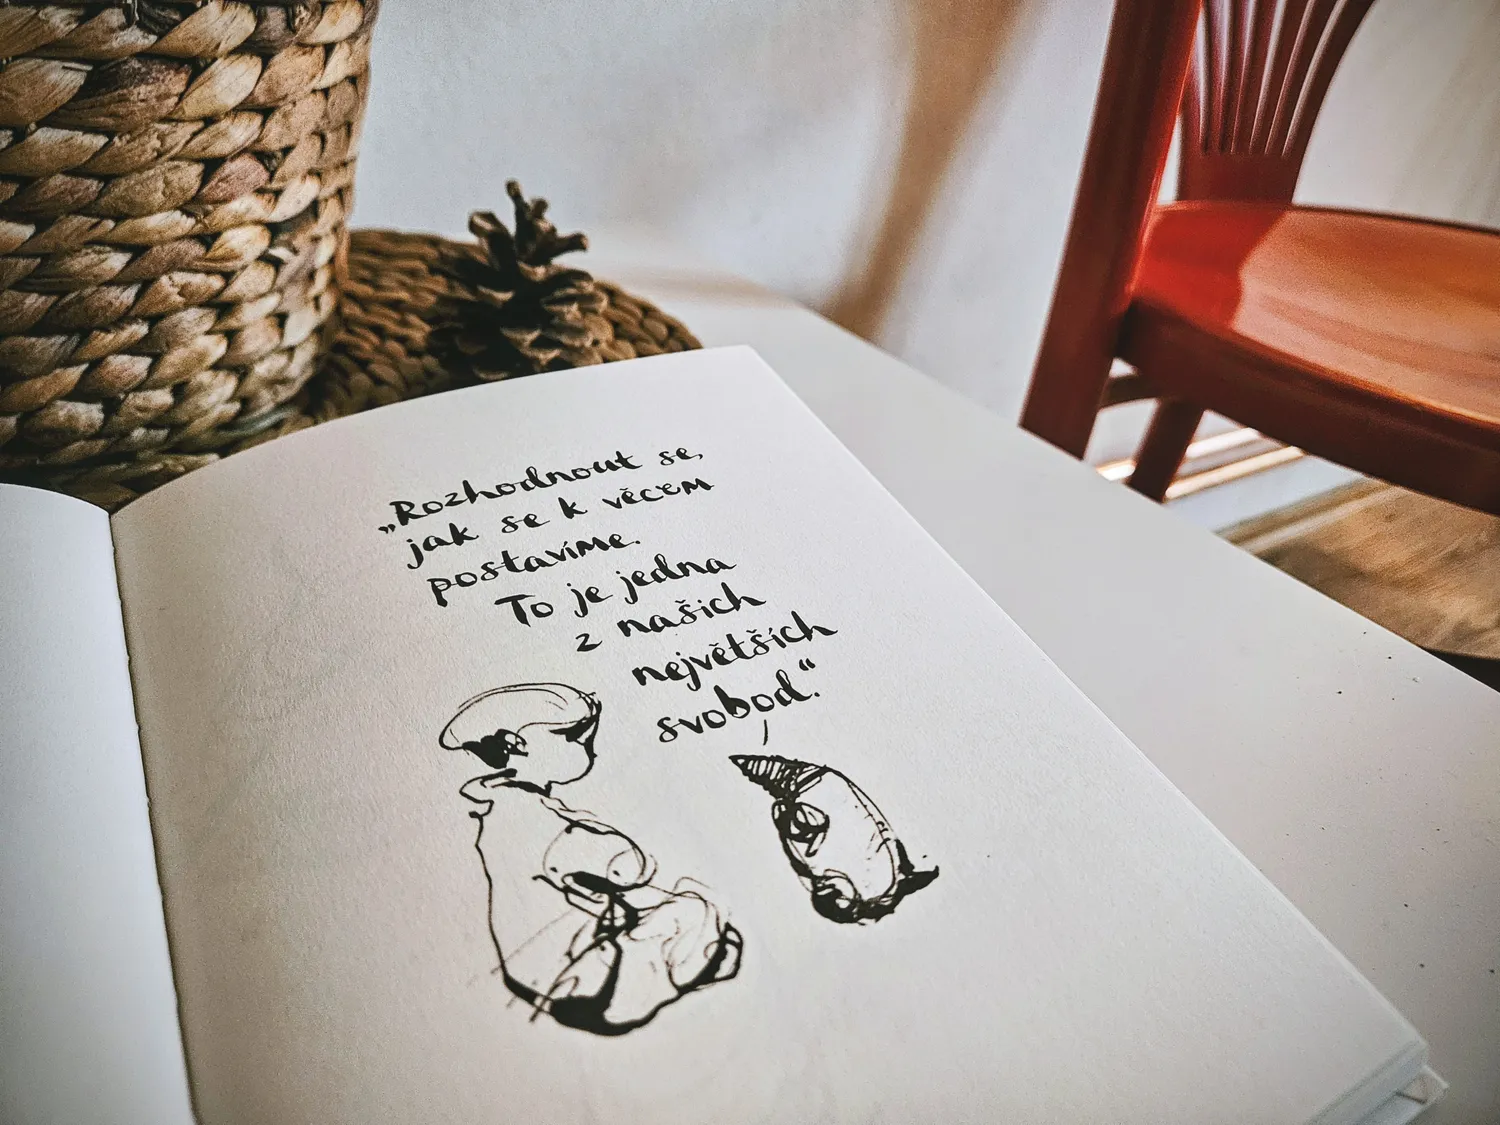 „Rozhodnout se,
jak se k věcem
postavíme.
To je jedna
z našich
největších
svobod.“